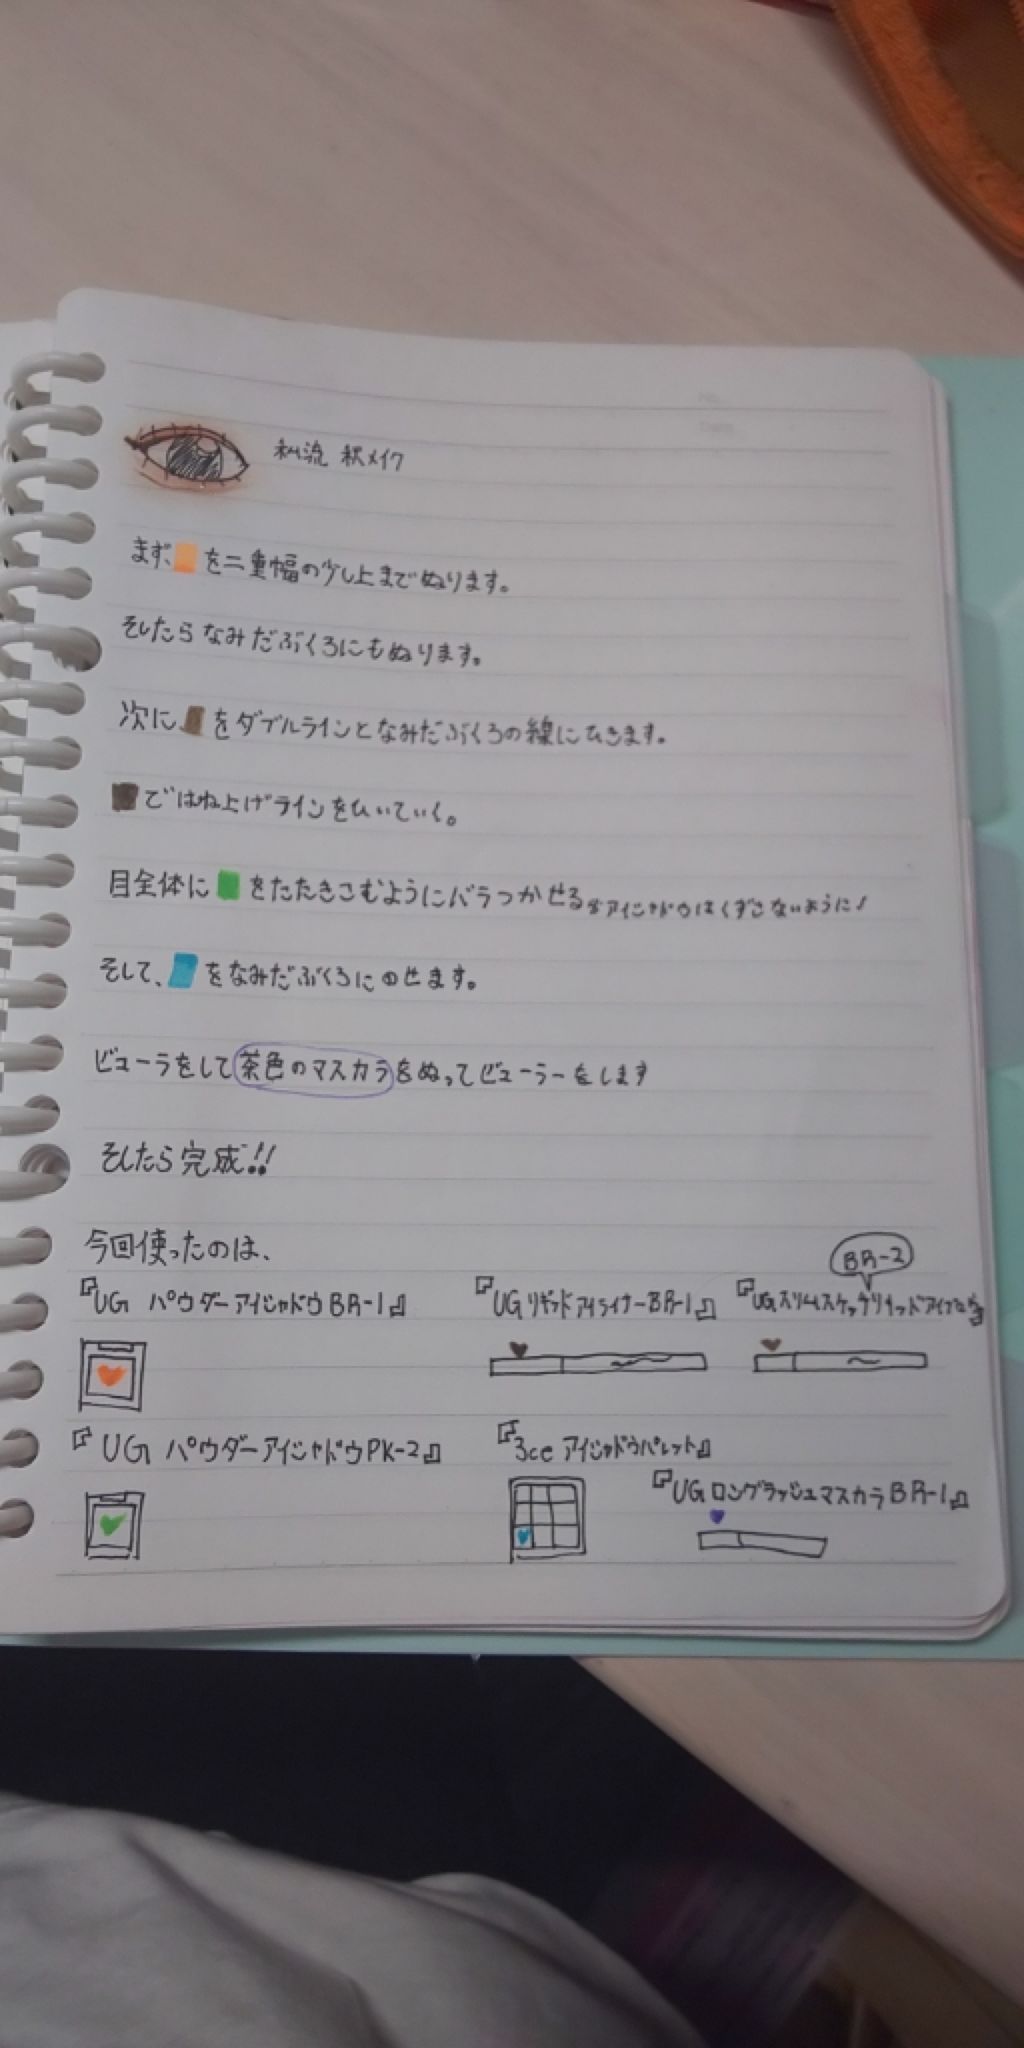 私流 秋メイク
まず、を二重幅の少し上までぬります。
そしたらなみだぶくろにもぬります。
次にをダブルラインとなみだぶくろの線にひきます。
ではね上げラインをひいていく。
目全体にをたたきこむようにバラつかせる ※アイシャドウはくずさないように!
そして、をなみだぶくろにのせます。
ビューラをして茶色のマスカラをぬってビューラーをします
そしたら完成!!
今回使ったのは、
BR-2
『UG パウダーアイシャドウBR-1』 『UGリキッドアイライナーBR-1』 『UGスリムスケッチリキッドアイライナー』
『UG パウダーアイシャドウPK-2』 『3ce アイシャドウパレット』
『UGロングラッシュマスカラBR-1』